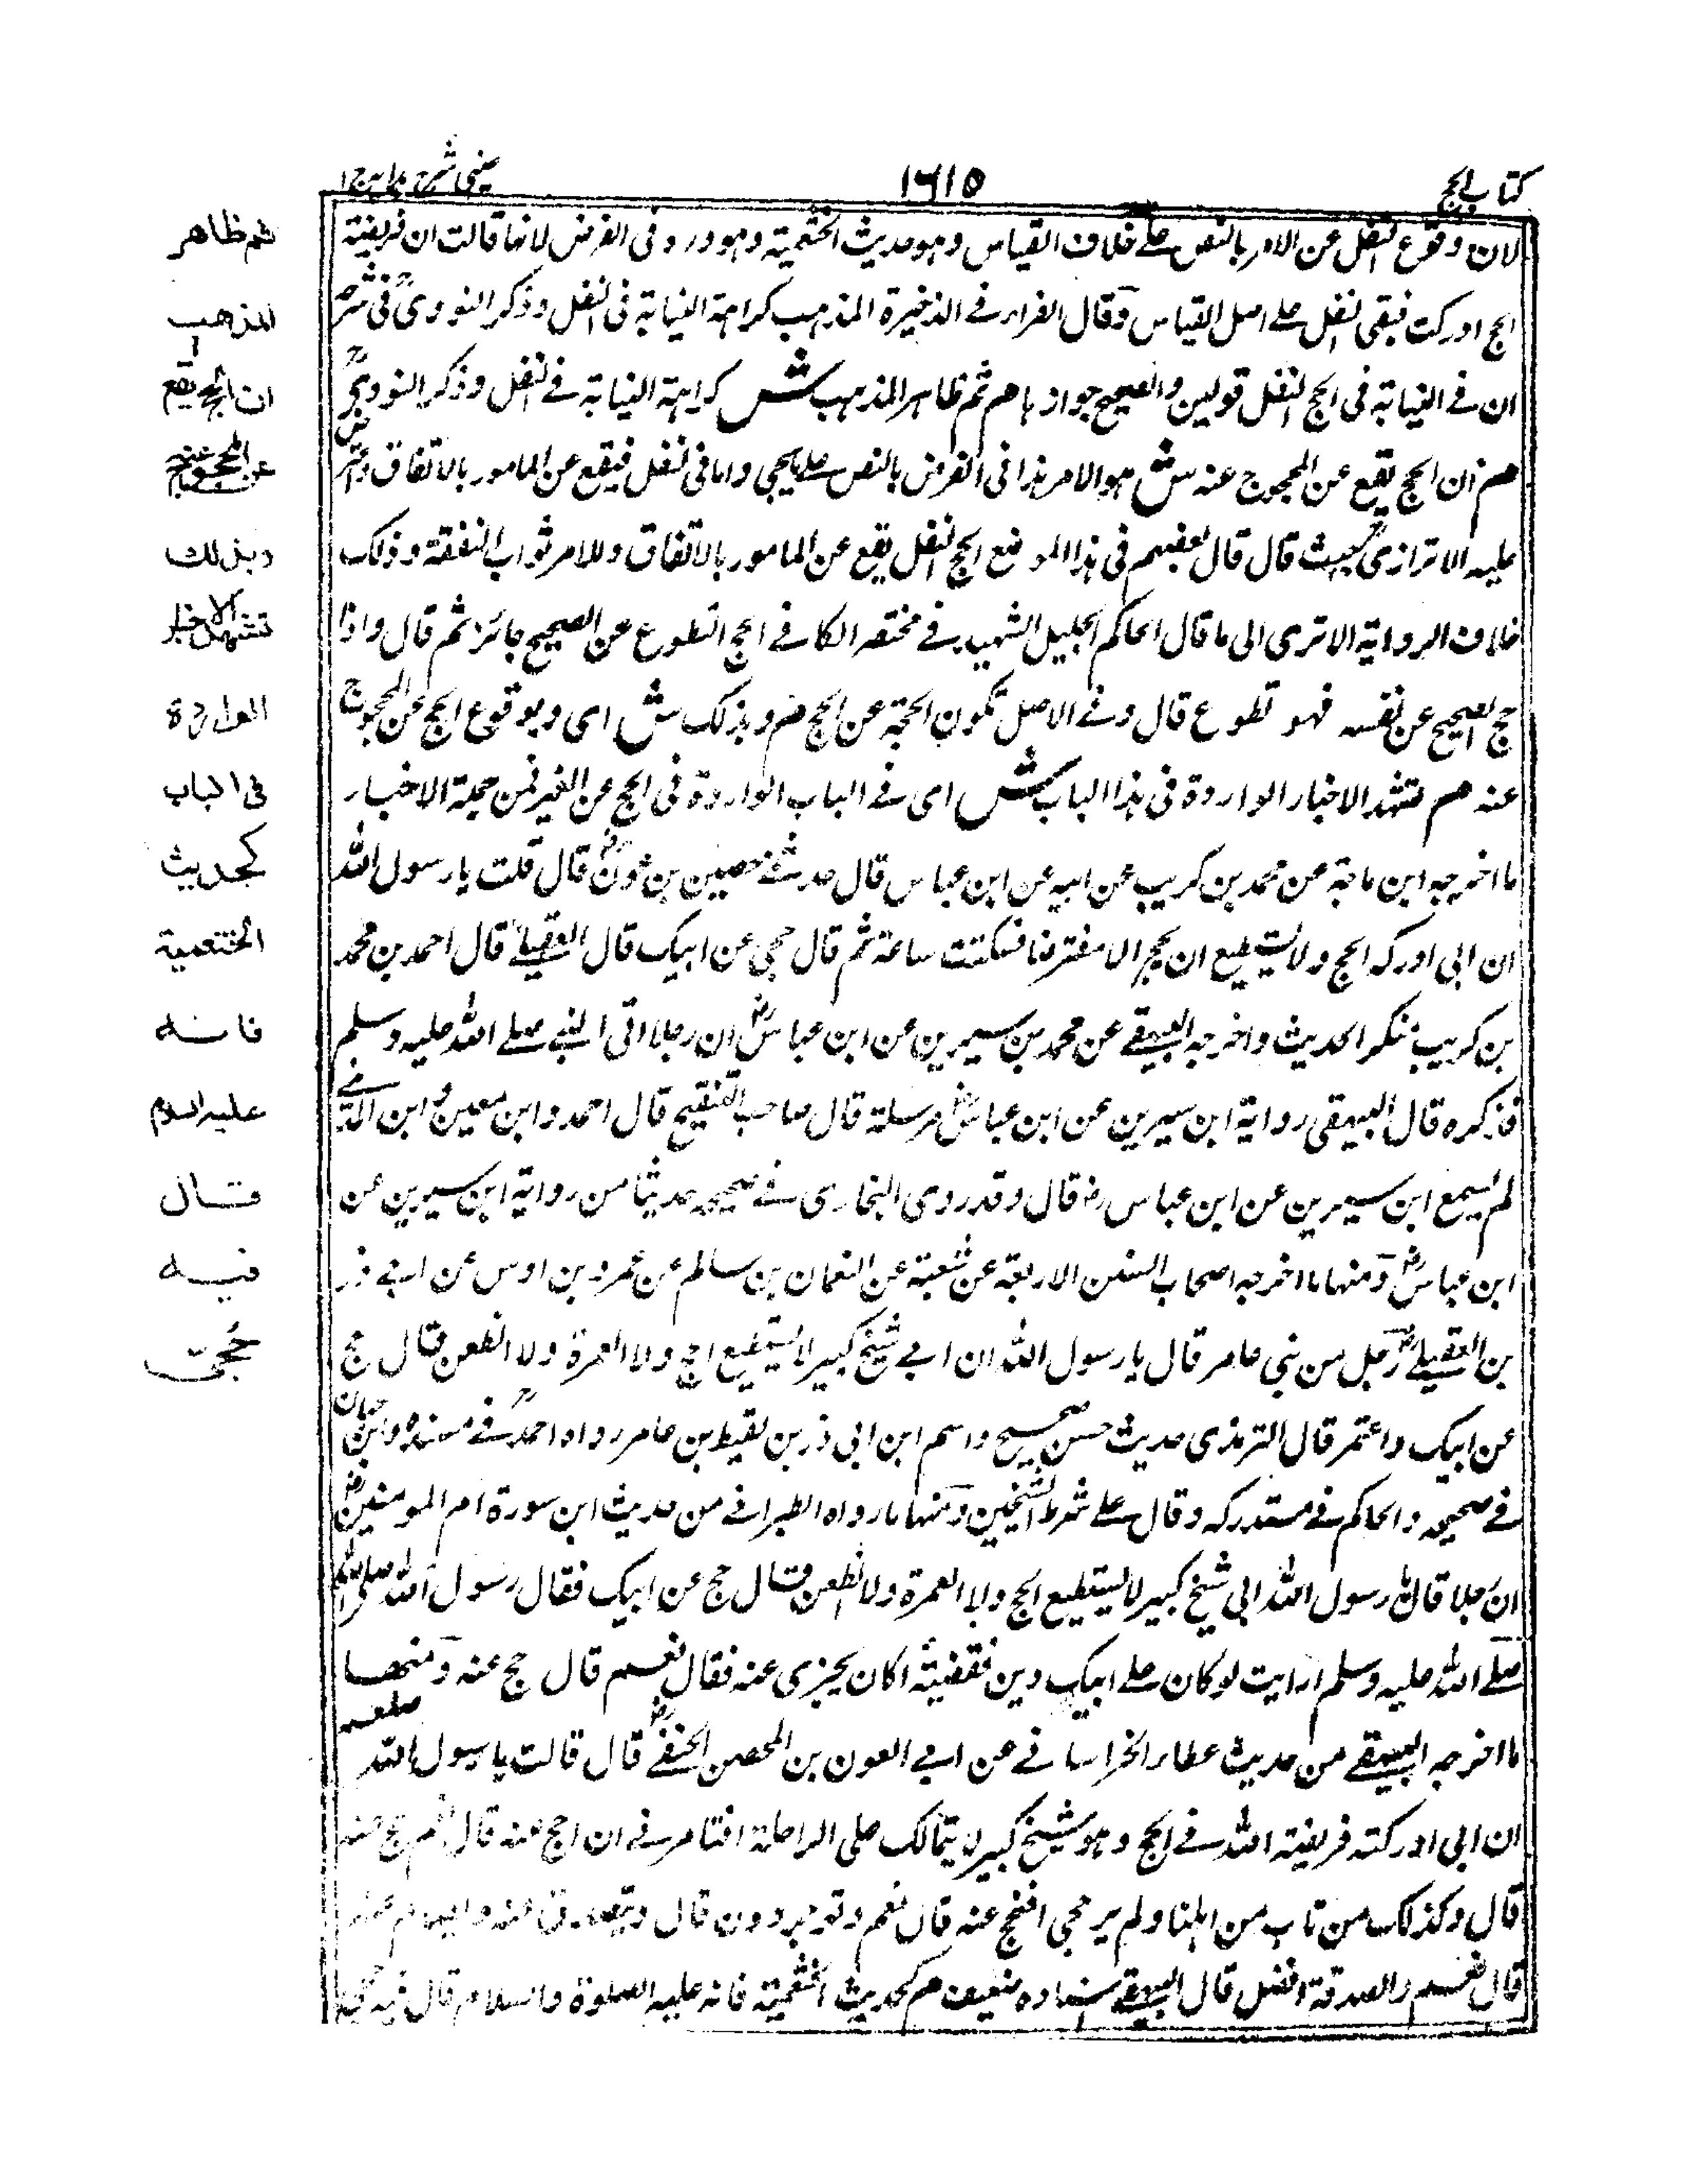 كتاب الحج
١٦١٥
عينى شرح هدايه ج ١
لان وقوع النفل عن الامر بالنص على خلاف القياس وهو حديث الخثعمية وهو ورد فى الفرض لانها قالت ان فريضة
الحج ادركت فبقى النفل على اصل القياس وقال القرار فى الذخيرة المذهب كراهة النيابة فى النفل وذكر النووى فى شرح
ان فى النيابة فى الحج النفل قولين والصحيح جوازها هم ثم ظاهر المذهب ش كراهة النيابة فى النفل وذكر النووى
هم ان الحج يقع عن المحجوج عنه ش هو الامر هذا فى الفرض بالنص على ما يجى واما فى النفل فيقع عن المامور بالاتفاق
عليه الاترازى حيث قال قال بعضهم فى هذا الموضع الحج النفل يقع عن المامور بالاتفاق وللامر ثواب النفقة وذلك
خلاف الرواية الا ترى الى ما قال الحاكم الجليل الشهيد فى مختصر الكافى الحج التطوع عن الصحيح جائز ثم قال واذا
حج الصحيح عن نفسه فهو تطوع قال وفى الاصل تكون الحجة عن الحج هم وبذلك ش اى وبوقوع الحج عن المحجوج
عنه هم تشهد الاخبار الواردة فى هذا الباب ش اى فى الباب الواردة فى الحج عن الغير فمن جملة الاخبار
ما اخرجه ابن ماجة عن محمد بن كريب عن ابيه عن ابن عباس قال حدثنى حصين بن عون قال قلت يا رسول الله
ان ابى ادركه الحج ولا يستطيع ان يحج الا مفترضا فسكتت ساعة ثم قال حجى عن ابيك قال العقيلى قال احمد بن محمد
بن كريب منكر الحديث واخرجه البيهقى عن محمد بن سيرين عن ابن عباس ان رجلا اتى النبى صلى الله عليه وسلم
فذكره قال البيهقى رواية ابن سيرين عن ابن عباس مرسلة قال صاحب التنقيح قال احمد وابن معين وابن المدينى
لم يسمع ابن سيرين عن ابن عباس رض قال وقد روى البخارى فى صحيحه حديثا من رواية ابن سيرين عن
ابن عباس ومنها ما اخرجه اصحاب السنن الاربعة عن شعبة عن النعمان بن سالم عن عمرو بن اوس عن ابى ذر
بن العقيلى رجل من بنى عامر قال يا رسول الله ان ابى شيخ كبير لا يستطيع الحج ولا العمرة ولا الظعن قال حج
عن ابيك واعتمر قال الترمذى حديث حسن صحيح واسم ابن ابى ذر بن لقيط بن عامر رواه احمد فى مسنده وابن حبان
فى صحيحه والحاكم فى مستدركه وقال على شرط الشيخين ومنها ما رواه الطبرانى من حديث ابن سورة ام المومنين
ان رجلا قال يا رسول الله ابى شيخ كبير لا يستطيع الحج ولا العمرة ولا الظعن قال حج عن ابيك فقال رسول الله صلى الله
صلى الله عليه وسلم ارايت لو كان على ابيك دين فقضيته اكان يجزى عنه فقال نعم قال حج عنه ومنها
ما اخرجه البيهقى من حديث عطاء الخراسانى عن ابى العون بن المحصن الحنفى قال قالت يا رسول الله صلعم
ان ابى ادركته فريضة الله فى الحج وهو شيخ كبير لا يتمالك على الراحلة افتامرنى ان احج عنه قال نعم حج عنه
قال وكذلك من تاب من اهلنا ولم يرحجى افنحج عنه قال نعم وتوجرون قال ويتصدق عنه ويصام عنه
قال نعم والصدقة افضل قال البيهقى اسناده ضعيف هم كحديث الخثعمية فانه عليه الصلوة والسلام قال فيه حجى
ثم ظاهر
المذهب
ان الحج يقع
عن المحجوج عنه
وبذلك
تشهد الاخبار
الواردة
فى الباب
كحديث
الخثعمية
فانه
عليه السلام
قال
فيه
حُجى